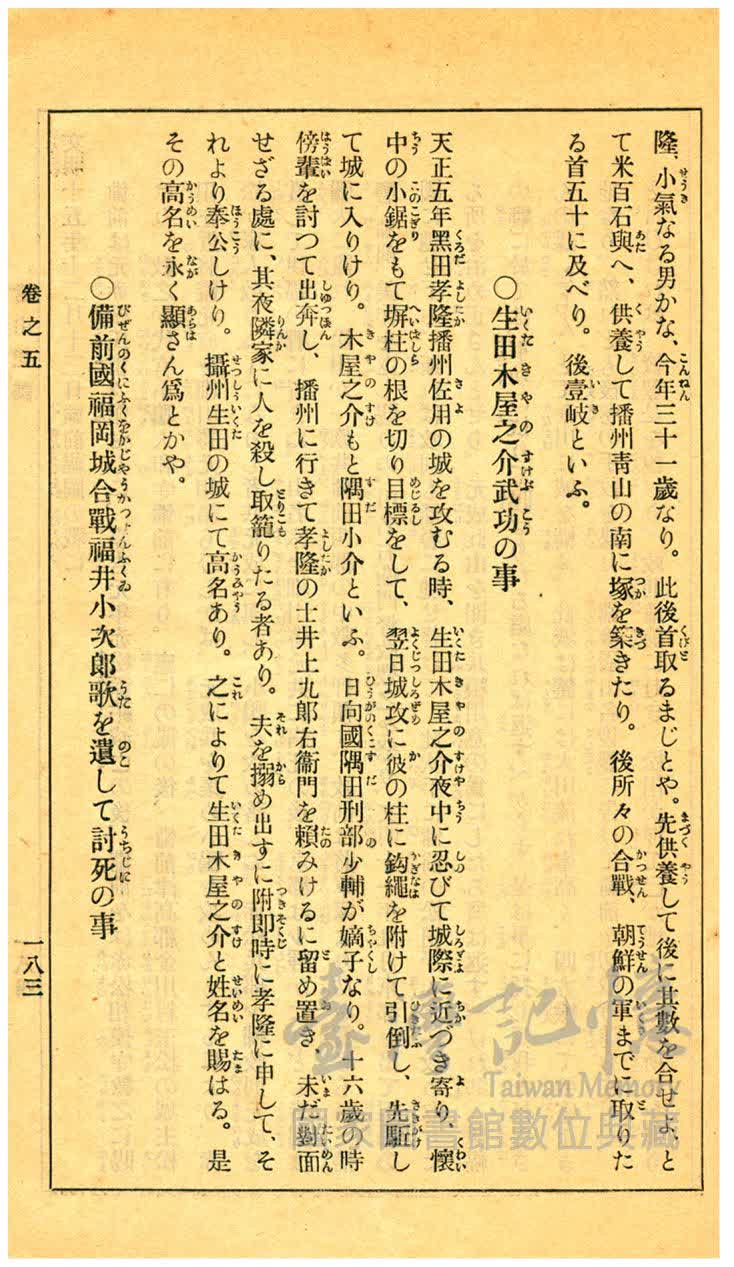 隆、小氣なる男かな、今年三十一歲なり。此後首取るまじとや。先供養して後に其數を合せよ、と
て米百石與へ、供養して播州靑山の南に塚を築きたり。後所々の合戰、朝鮮の軍までに取りた
る首五十に及べり。後壹岐といふ。
〇生田木屋之介武功の事
天正五年黑田孝隆播州佐用の城を攻むる時、生田木屋之介夜中に忍びて城際に近づき寄り、懷
中の小鋸をもて塀柱の根を切り目標をして、翌日城攻に彼の柱に鈎繩を附けて引倒し、先駈し
て城に入りけり。木屋之介もと隅田小介といふ。日向國隅田刑部少輔が嫡子なり。十六歲の時
傍輩を討つて出奔し、播州に行きて孝隆の士井上九郎右衞門を賴みけるに留め置き、未だ對面
せざる處に、其夜隣家に人を殺し取籠りたる者あり。夫を搦め出すに附卽時に孝隆に申して、そ
れより奉公しけり。攝州生田の城にて高名あり。之によりて生田木屋之介と姓名を賜はる。是
その高名を永く顯さん爲とかや。
〇備前國福岡城合戰福井小次郎歌を遺して討死の事
卷之五
一八三
臺灣記憶
Taiwan Memory
國家圖書館數位典藏